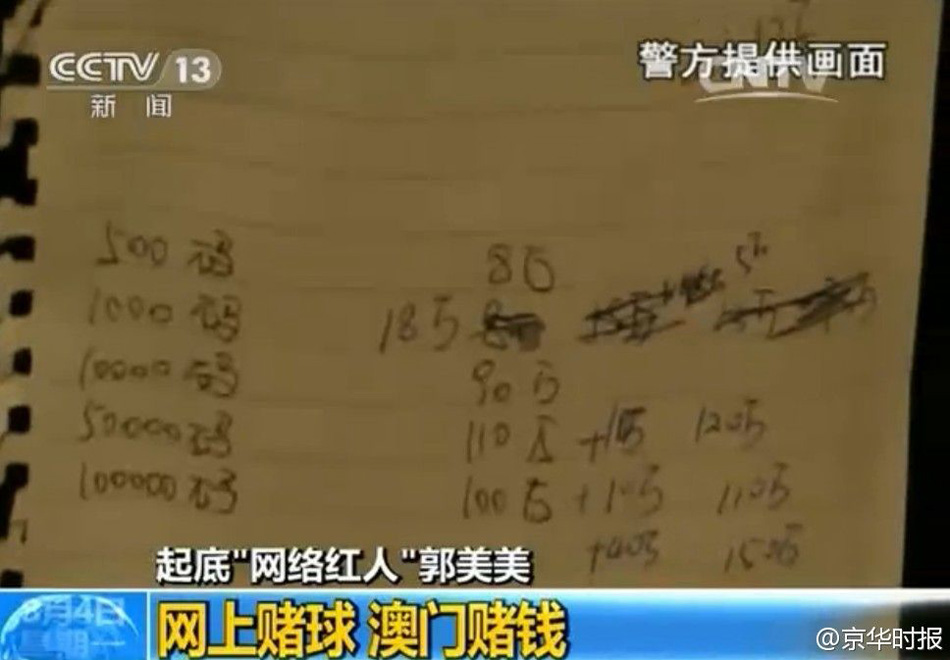 CCTV 13
新闻
警方提供画面
CNTV
500码 8万 5万
1000码 18万
10000码 90万
50000码 110万 120万
100000码 100万 +10万 110万
150万
起底"网络红人"郭美美
8月4日
星期一
网上赌球 澳门赌钱
@京华时报